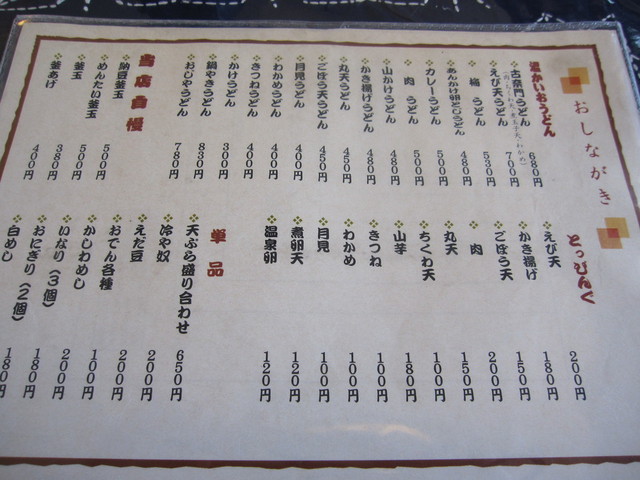 おしながき
温かいおうどん
古奈門うどん 680円
えび天うどん 700円
梅うどん 530円
あんかけ卵とじうどん 480円
カレーうどん 500円
肉うどん 500円
山かけうどん 480円
かき揚げうどん 480円
丸天うどん 450円
ごぼう天うどん 450円
月見うどん 400円
わかめうどん 400円
きつねうどん 400円
かけうどん 300円
鍋やきうどん 830円
おじやうどん 780円
当店自慢
納豆釜玉 500円
めんたい釜玉 500円
釜玉 380円
釜あげ 400円
とっぴんぐ
えび天 200円
かき揚げ 180円
ごぼう天 150円
肉 200円
丸天 150円
ちくわ天 100円
山芋 180円
きつね 100円
わかめ 100円
月見 100円
煮卵天 120円
温泉卵 120円
単品
天ぷら盛り合わせ 650円
冷や奴 200円
えだ豆 200円
おでん各種 100円
かしわめし 200円
いなり（3個） 180円
おにぎり（2個） 180円
白めし